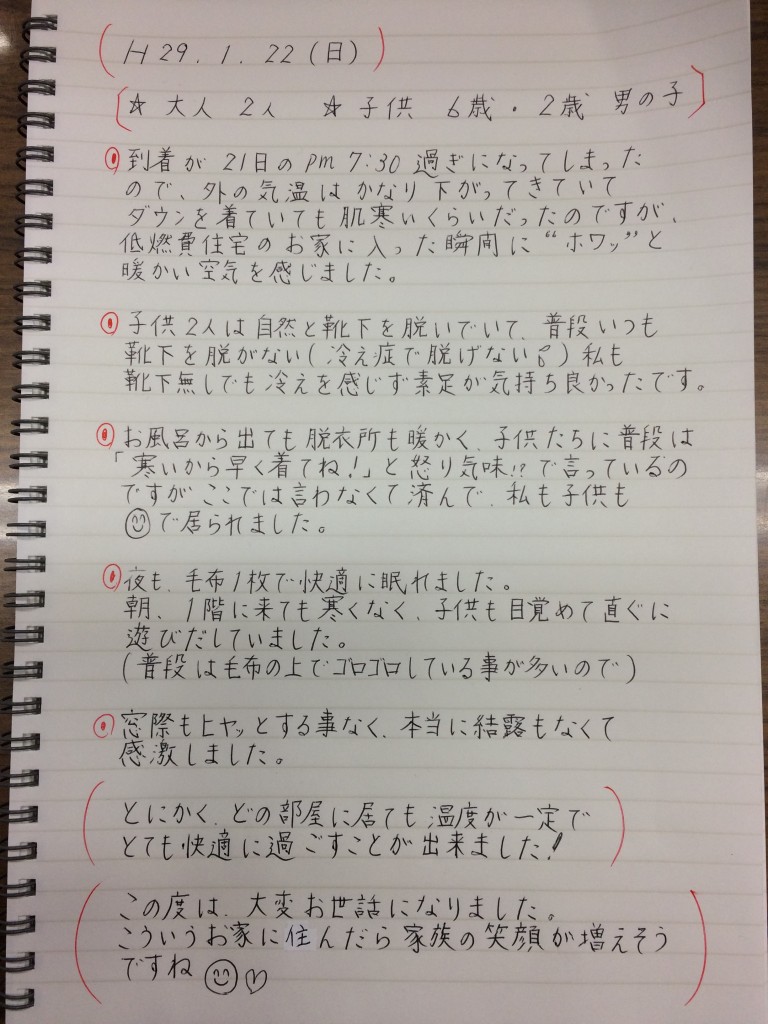 (H29.1.22(日))
[☆ 大人 2人 ☆ 子供 6歳・2歳 男の子]
到着が 21日の pm 7:30 過ぎになってしまった
ので、外の気温は かなり 下がってきていて
ダウンを着ていても肌寒いくらいだったのですが、
低燃費住宅の お家に 入った瞬間に "ホワッ" と
暖かい空気を感じました。
子供2人は自然と靴下を脱いでいて、普段いつも
靴下を脱がない(冷え症で脱げない💧)私も
靴下無しでも冷えを感じず素足が気持ち良かったです。
お風呂から出ても脱衣所も暖かく、子供たちに普段は
「寒いから早く着てね!」と怒り気味!?で言っているの
ですが ここでは言わなくて済んで、私も子供も
☺で居られました。
夜も、毛布1枚で快適に眠れました。
朝、1階に来ても寒くなく、子供も目覚めて直ぐに
遊びだしていました。
(普段は毛布の上でゴロゴロしている事が多いので)
窓際もヒヤッとする事なく、本当に結露もなくて
感激しました。
(とにかく、どの部屋に居ても温度が一定で
とても快適に過ごすことが出来ました!)
(この度は、大変お世話になりました。
こういうお家に住んだら家族の笑顔が増えそう
ですね☺♡)